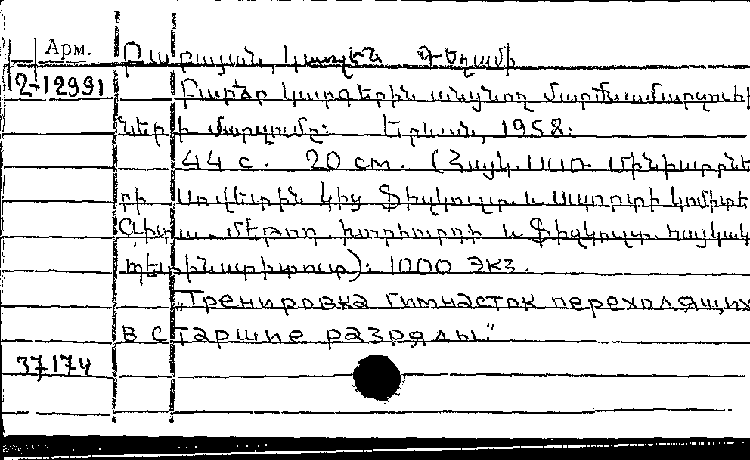 Арм.
Բաբայան, Կառլեն Գեղամի
12-12991
Բարձր կարգերին անցնող մարմնամարզուհի
ների մարզումը: Երևան, 1958:
44 с. 20 cm. (Հայկ. ՍՍՌ. Մինիստրնե
րի Սովետին կից Ֆիզկուլտ. և սպորտի կոմիտե
Գիտա. մեթոդ. խորհուրդի և Ֆիզկուլտ. հայկակ
պետ. ինստիտուտ): 1000 экз.
„Тренировка гимнасток переходящих
в старшие разряды."
37174